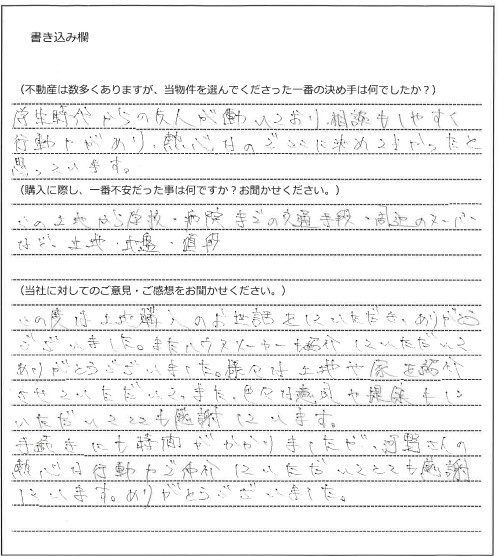 書き込み欄
（不動産は数多くありますが、当物件を選んでくださった一番の決め手は何でしたか？）
学生時代からの友人が働いており相談もしやすく
行動力があり、熱心なのでここに決めてよかったと
思っています。
（購入に際し、一番不安だった事は何ですか？お聞かせください。）
この土地から学校・病院までの交通手段・周辺のスーパー
など、土地・地盤・値段
（当社に対してのご意見・ご感想をお聞かせください。）
この度は土地購入のお世話をしていただき、ありがとう
ございました。またハウスメーカーも紹介していただいて
ありがとうございました。様々な土地や家を紹介
させていただいて、また、色々な意見や提案をし
いただいてとても感謝しています。
手続きにも時間がかかりましたが、河野さんの
熱心な行動やご紹介していただいてとても感謝
しています。ありがとうございました。